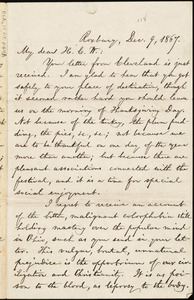 Roxbury, Dec. 9, 1867.
My dear H. C. W.:
Your letter from Cleveland is just
received. I am glad to hear that you got
safely to your place of destination, though
it seemed rather hard you should leave
us on the morning of Thanksgiving Day.
Not because of the turkey, the plum pud-
ding, the pies, &c., &c.; not because we are
to be thankful on one day of the year
more than another; but because there are
pleasant associations connected with the
festival, and it is a time for special
social enjoyment.
I regret to receive an account
of the bitter, malignant colorphobia still
holding mastery over the popular mind
in Ohio, such as you send in your let-
ter. This vulgar, brutal, unnatural
prejudice is the opprobrium of our civ-
ilization and Christianity. It is as poi-
son to the blood, as leprosy to the body,